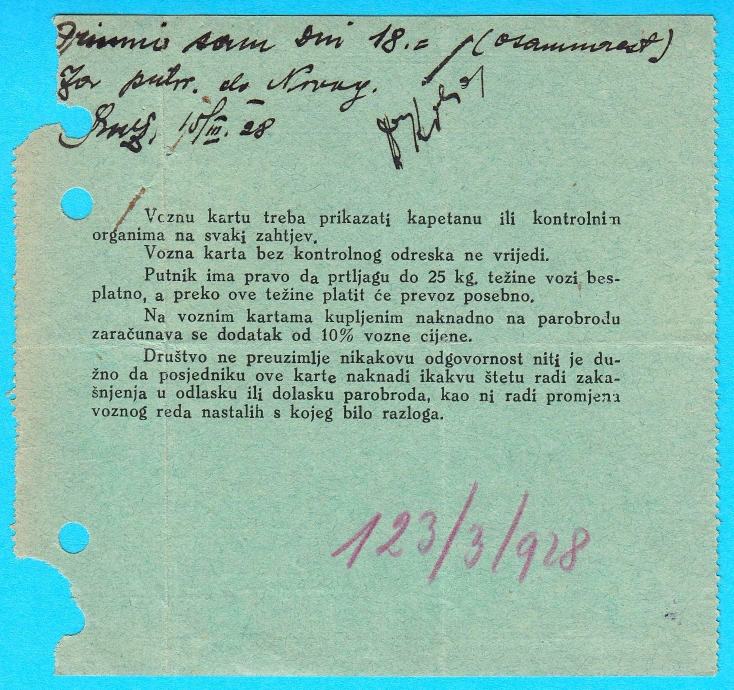 Primio sam Din 18.= (osamnaest)
Za putov. do Novog.
10/III. 28
Voznu kartu treba prikazati kapetanu ili kontrolnim
organima na svaki zahtjev.
Vozna karta bez kontrolnog odreska ne vrijedi.
Putnik ima pravo da prtljagu do 25 kg. težine vozi bes-
platno, a preko ove težine platit će prevoz posebno.
Na voznim kartama kupljenim naknadno na parobrodu
zaračunava se dodatak od 10% vozne cijene.
Društvo ne preuzimlje nikakovu odgovornost niti je du-
žno da posjedniku ove karte naknadi ikakvu štetu radi zaka-
šnjenja u odlasku ili dolasku parobroda, kao ni radi promjena
voznog reda nastalih s kojeg bilo razloga.
123/3/928